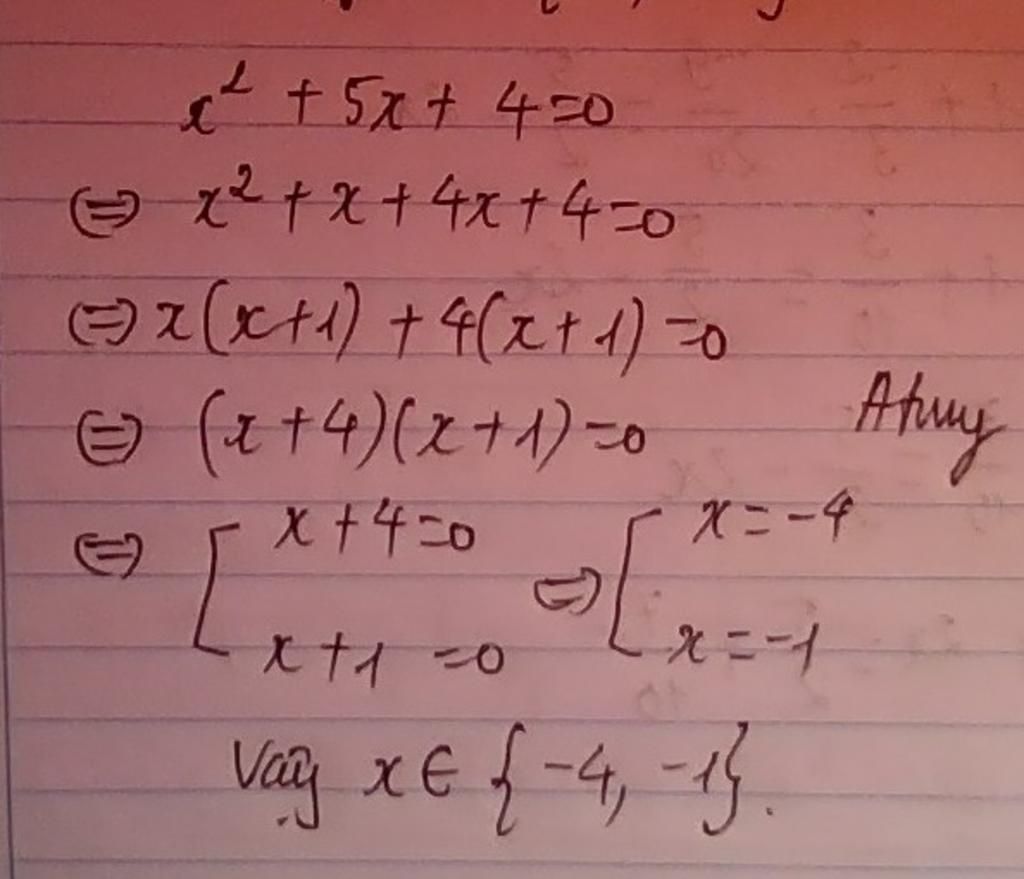 x² + 5x + 4 = 0
⇔ x² + x + 4x + 4 = 0
⇔ x(x+1) + 4(x+1) = 0
⇔ (x+4)(x+1) = 0
⇔ [ x + 4 = 0 ⇔ [ x = -4
x + 1 = 0 x = -1
Vậy x ∈ {-4, -1}.